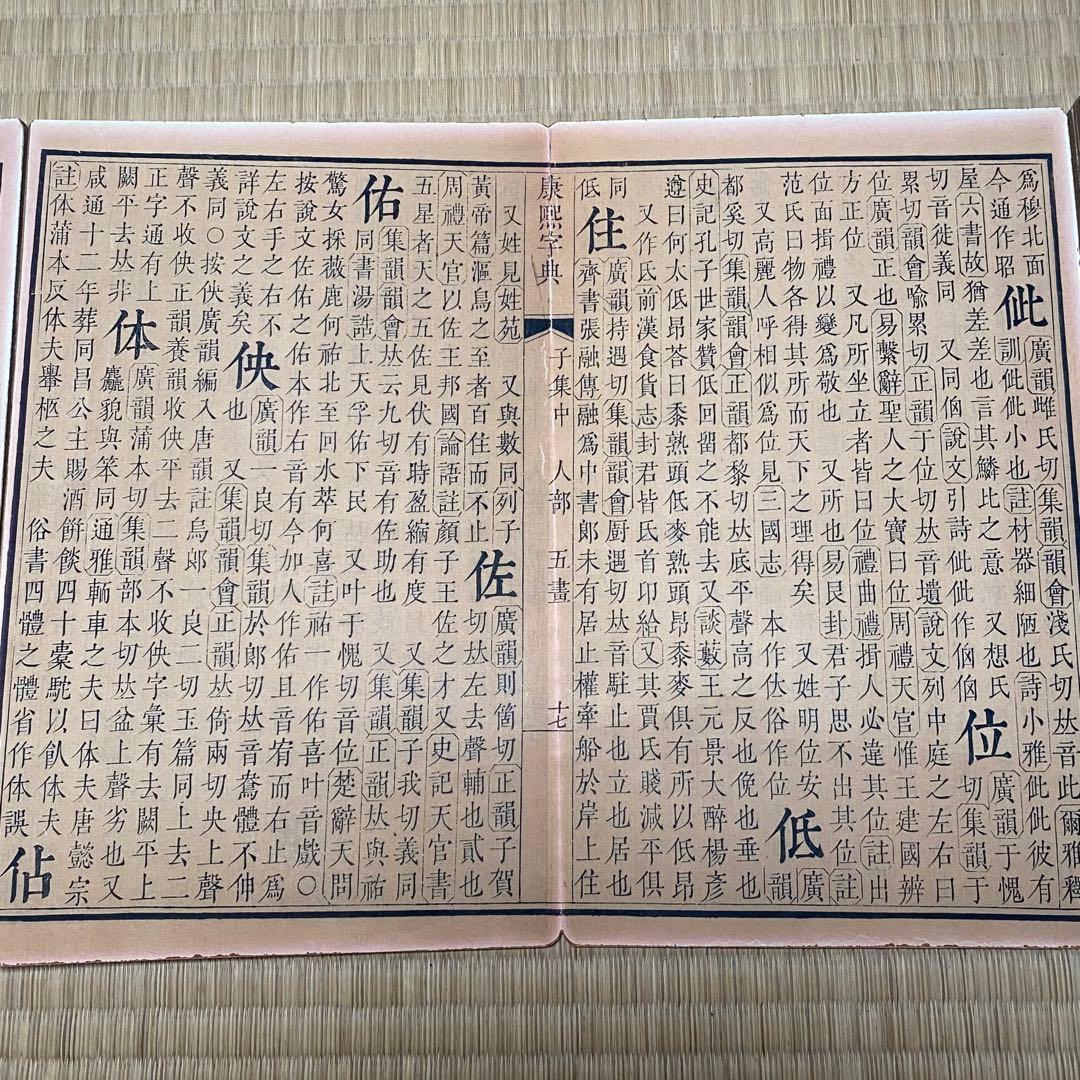 爲穆北面
今通作昭
佌
廣韻雌氏切集韻韻會淺氏切𠀤音此爾雅釋
訓佌佌小也註材器細陋也詩小雅佌佌彼有
屋六書故猶差差也言其鱗比之意 又想氏
切音徙義同 又同㑻說文引詩佌佌作㑻㑻
位
廣韻于愧
切集韻于
累切韻會喻累切正韻于位切𠀤音遺說文列中庭之左右曰
位廣韻正也易繫辭聖人之大寶曰位周禮天官惟王建國辨
方正位 又凡所坐立者皆曰位禮曲禮揖人必違其位註出
位面揖禮以變爲敬也 又所也易艮卦君子思不出其位註
范氏曰物各得其所而天下之理得矣 又姓明位安
又高麗人呼相似爲位見三國志 本作㕻俗作位
低
廣
韻
都奚切集韻韻會正韻都黎切𠀤底平聲高之反也俛也垂也
史記孔子世家贊低回留之不能去又談藪王元景大醉楊彥
遵曰何太低昂荅曰黍熟頭低麥熟頭昂黍麥俱有所以低昂
又作氐前漢食貨志封君皆氐首卬給又其賈氐賤減平俱
同
低
住
廣韻持遇切集韻韻會厨遇切𠀤音駐止也立也居也
齊書張融傳融爲中書郞未有居止權牽船於岸上住
康熙字典 子集中 人部 五畫 十七
又姓見姓苑 又與數同列子
黃帝篇漚鳥之至者百住而不止
佐
廣韻則箇切正韻子賀
切𠀤左去聲輔也貳也
周禮天官以佐王邦國論語註顏子王佐之才又史記天官書
五星者天之五佐見伏有時盈縮有度 又集韻子我切義同
佑
集韻韻會𠀤云九切音有佐助也 又集韻正韻𠀤與祐
同書湯誥上天孚佑下民 又叶于愧切音位楚辭天問
驚女採薇鹿何祐北至回水萃何喜註祐一作佑喜叶音戲○
按說文佐佑之佑本作右音有今加人作佑且音宥而右止爲
左右手之右不
詳說文之義矣
佒
廣韻一良切集韻於郞切𠀤音鴦體不伸
也 又集韻韻會正韻𠀤倚兩切央上聲
義同○按佒廣韻編入唐韻註烏郞一良二切玉篇同上去二
聲不收佒正韻養韻收佒平去二聲不收佒字彙有去闕平上
正字通有上
闕平去𠀤非
体
廣韻蒲本切集韻部本切𠀤盆上聲劣也又
麤貌與笨同通雅輀車之夫曰体夫唐懿宗
咸通十二年葬同昌公主賜酒餅餤四十橐駝以飤体夫
註体蒲本反体夫轝柩之夫 俗書四體之體省作体誤
佔